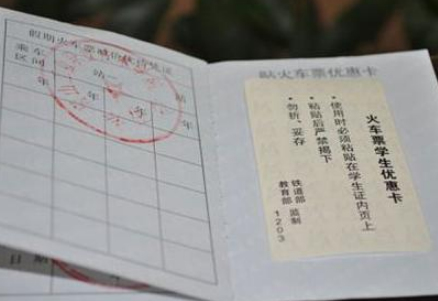 假期火车票减价优待凭证
乘车
区间
站—
站
年
年
年
年
日期
贴火车票优惠卡
火车票学生优惠卡
• 使用时必须粘贴在学生证内页上
• 粘贴后严禁揭下
• 勿折、妥存
铁道部
教育部
监制
1203